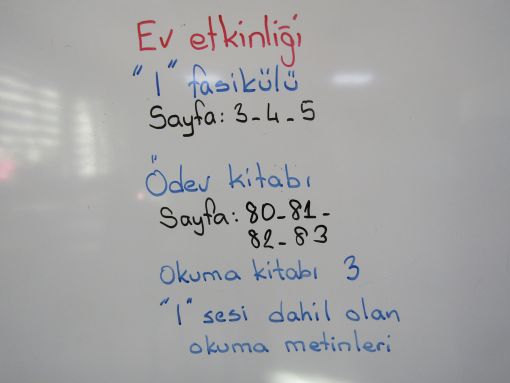 Ev etkinliği
"l" fasikülü
Sayfa: 3-4-5
Ödev kitabı
Sayfa: 80-81-
82-83
Okuma kitabı 3
"l" sesi dahil olan
okuma metinleri